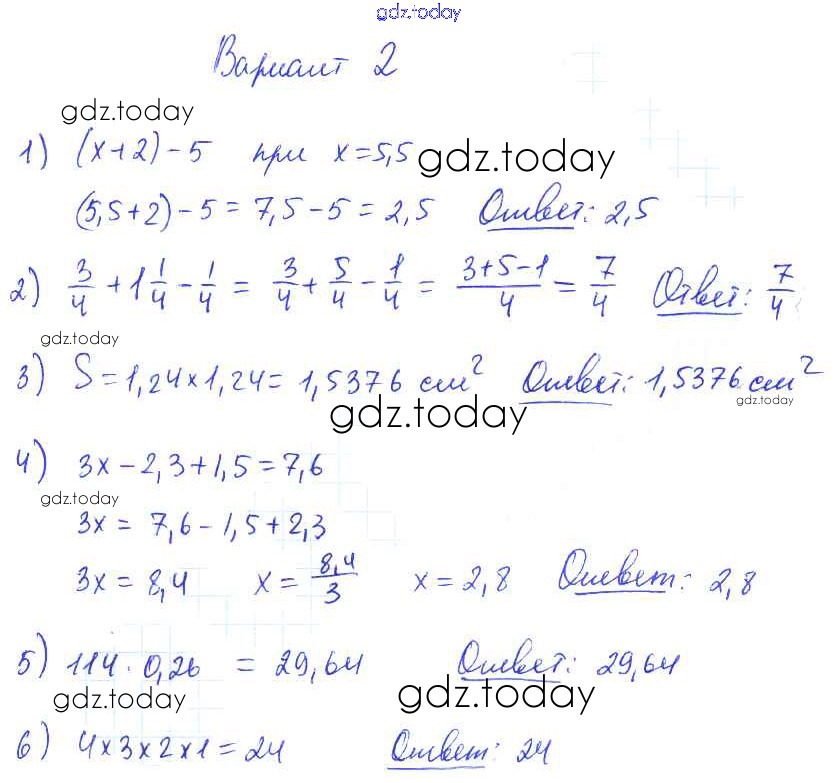 gdz.today
Вариант 2
gdz.today
1) (x+2)-5 при x=5,5 gdz.today
(5,5+2)-5=7,5-5=2,5 Ответ: 2,5
2) 3/4 + 1 1/4 - 1/4 = 3/4 + 5/4 - 1/4 = (3+5-1)/4 = 7/4 Ответ: 7/4
gdz.today
3) S=1,24×1,24=1,5376 см² Ответ: 1,5376 см²
gdz.today gdz.today
4) 3x-2,3+1,5=7,6
gdz.today
3x=7,6-1,5+2,3
3x=8,4 x=8,4/3 x=2,8 Ответ: 2,8
5) 114·0,26 =29,64 Ответ: 29,64
gdz.today gdz.today
6) 4×3×2×1=24 Ответ: 24